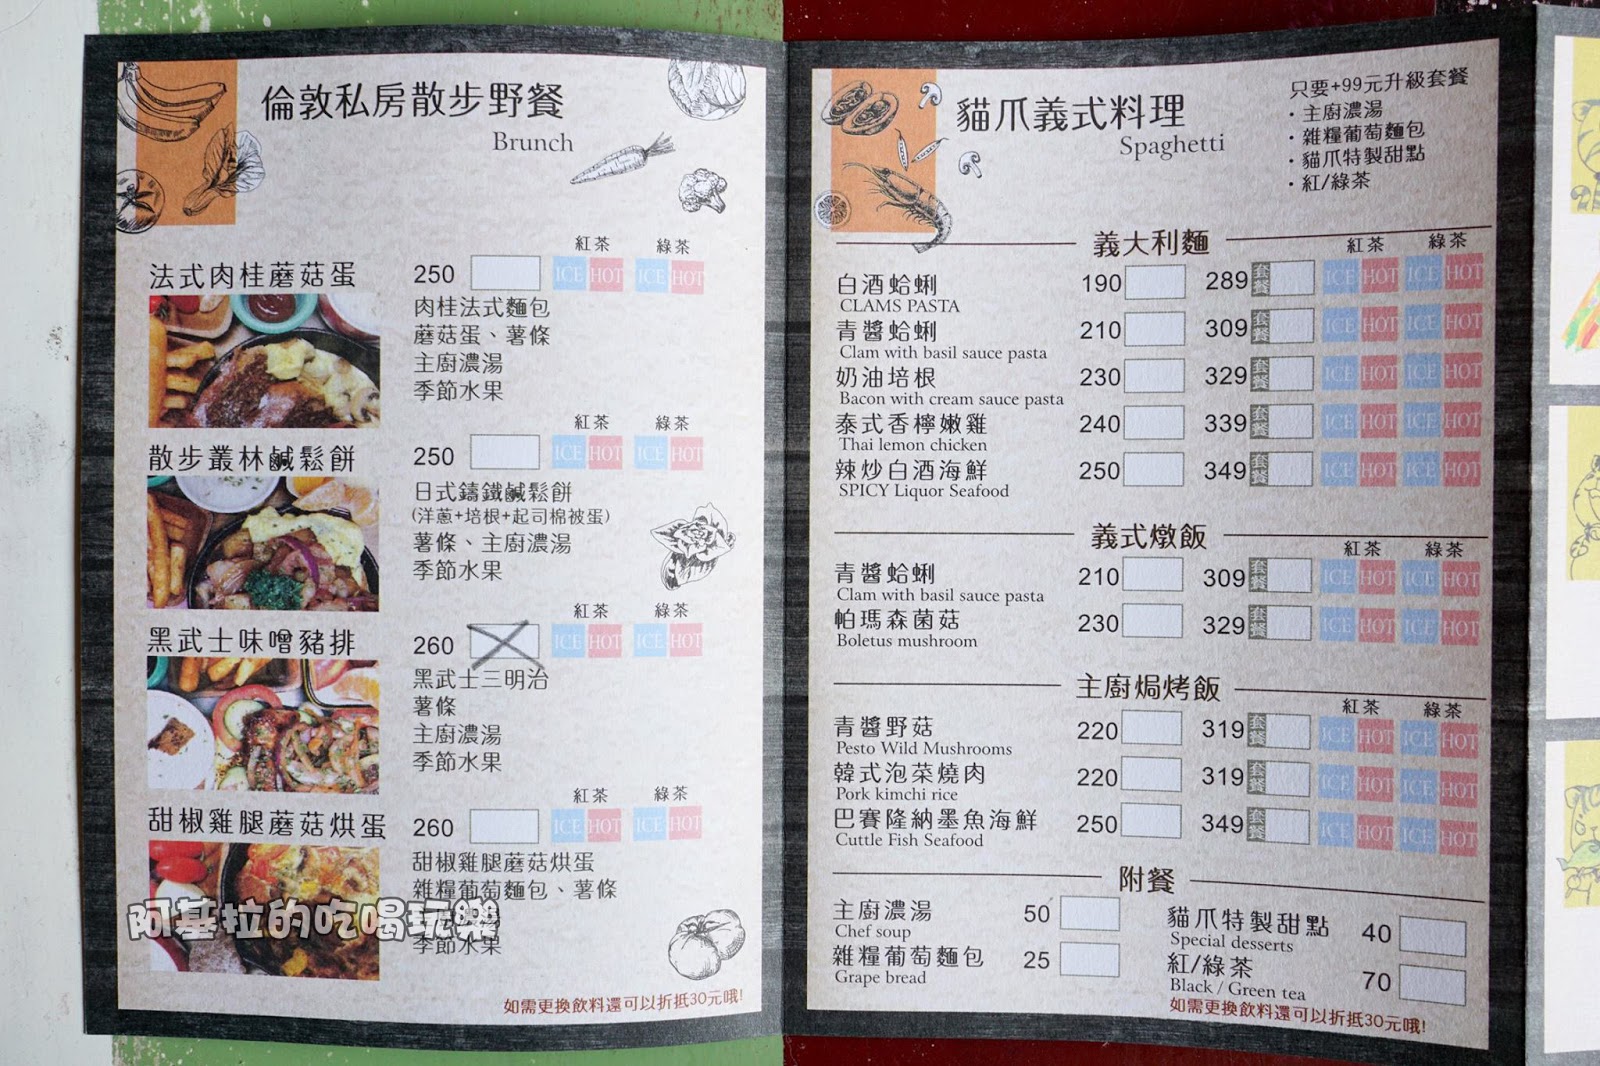 倫敦私房散步野餐
Brunch
紅茶 綠茶
法式肉桂蘑菇蛋 250 ICE HOT ICE HOT
肉桂法式麵包
蘑菇蛋、薯條
主廚濃湯
季節水果
紅茶 綠茶
散步叢林鹹鬆餅 250 ICE HOT ICE HOT
日式鑄鐵鹹鬆餅
(洋蔥+培根+起司棉被蛋)
薯條、主廚濃湯
季節水果
紅茶 綠茶
黑武士味噌豬排 260 ICE HOT ICE HOT
黑武士三明治
薯條
主廚濃湯
季節水果
紅茶 綠茶
甜椒雞腿蘑菇烘蛋 260 ICE HOT ICE HOT
甜椒雞腿蘑菇烘蛋
雜糧葡萄麵包、薯條
季節水果
阿基拉的吃喝玩樂
如需更換飲料還可以折抵30元哦!
貓爪義式料理
Spaghetti
只要+99元升級套餐
・主廚濃湯
・雜糧葡萄麵包
・貓爪特製甜點
・紅/綠茶
義大利麵 紅茶 綠茶
白酒蛤蜊 190 289 套餐 ICE HOT ICE HOT
CLAMS PASTA
青醬蛤蜊 210 309 套餐 ICE HOT ICE HOT
Clam with basil sauce pasta
奶油培根 230 329 套餐 ICE HOT ICE HOT
Bacon with cream sauce pasta
泰式香檸嫩雞 240 339 套餐 ICE HOT ICE HOT
Thai lemon chicken
辣炒白酒海鮮 250 349 套餐 ICE HOT ICE HOT
SPICY Liquor Seafood
義式燉飯 紅茶 綠茶
青醬蛤蜊 210 309 套餐 ICE HOT ICE HOT
Clam with basil sauce pasta
帕瑪森菌菇 230 329 套餐 ICE HOT ICE HOT
Boletus mushroom
主廚焗烤飯 紅茶 綠茶
青醬野菇 220 319 套餐 ICE HOT ICE HOT
Pesto Wild Mushrooms
韓式泡菜燒肉 220 319 套餐 ICE HOT ICE HOT
Pork kimchi rice
巴賽隆納墨魚海鮮 250 349 套餐 ICE HOT ICE HOT
Cuttle Fish Seafood
附餐
主廚濃湯 50
Chef soup
雜糧葡萄麵包 25
Grape bread
貓爪特製甜點 40
Special desserts
紅/綠茶 70
Black / Green tea
如需更換飲料還可以折抵30元哦!